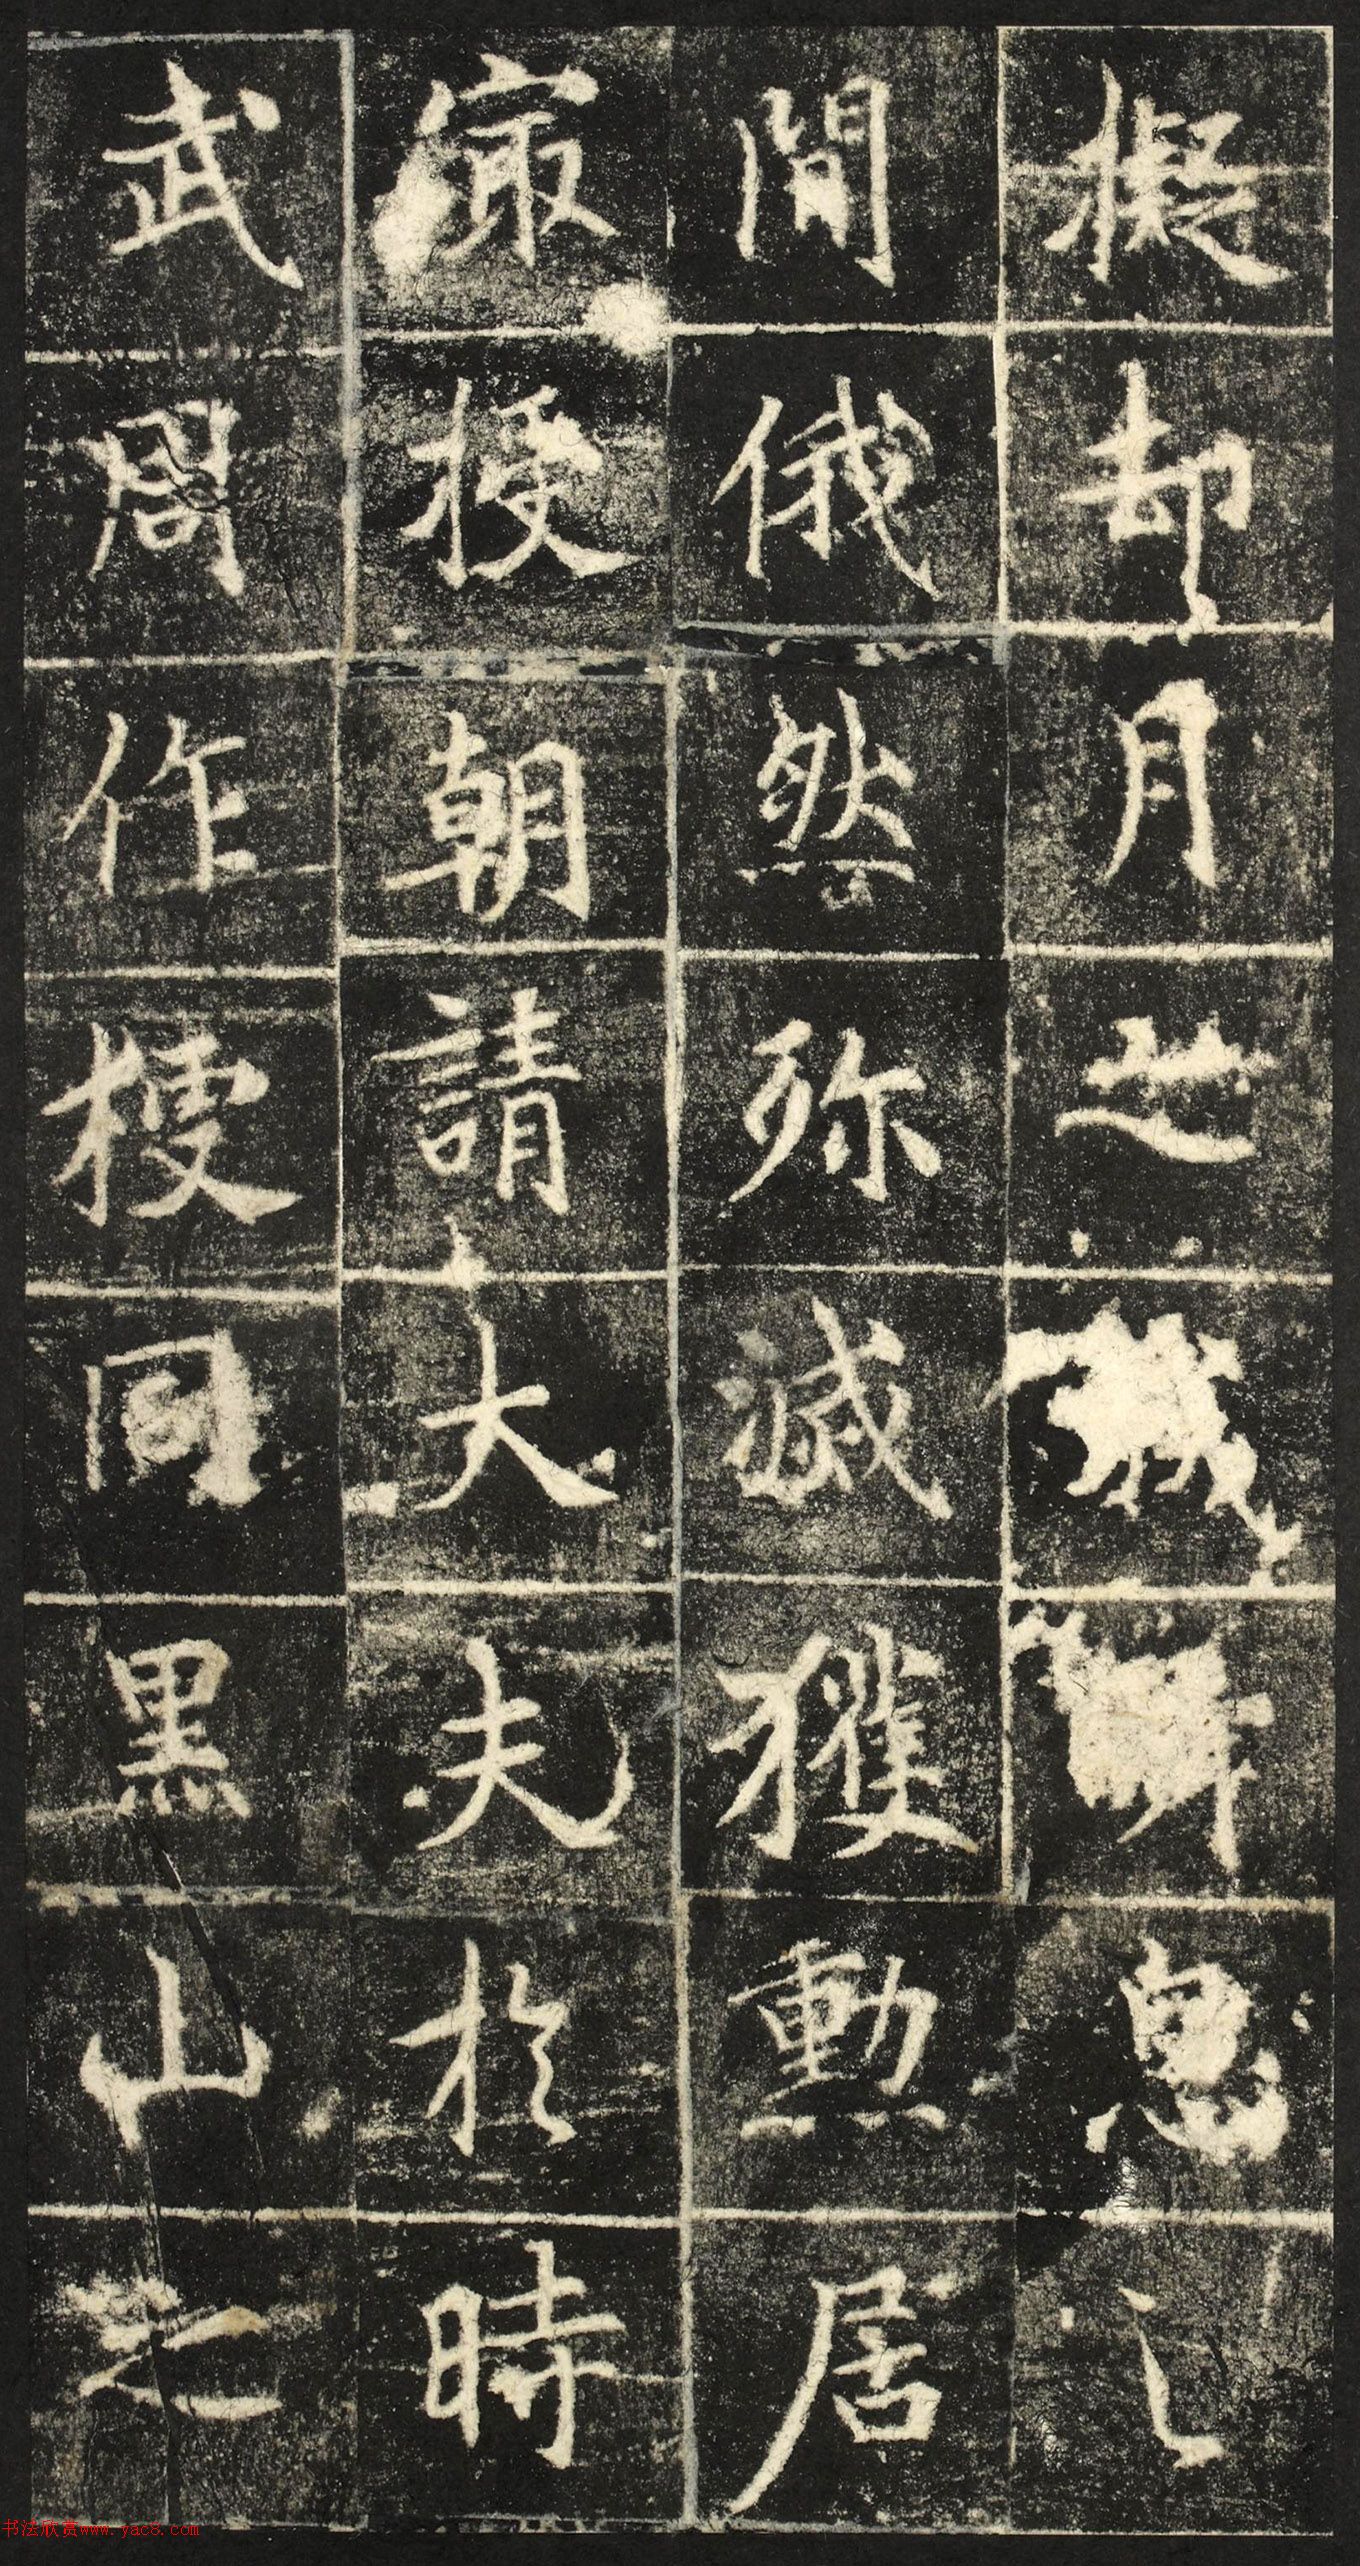 擬却月之瞬息之
間俄然弥滅獲勳居
冣授朝請大夫於時
武周作梗同黑山之
书法欣赏www.yac8.com